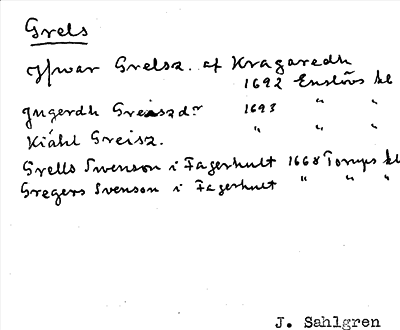 Grels
Ifwar Grelsz. af Kragaredh
1692 Enslövs kl
Ingerdh Greiszdr 1693 " "
Kiähl Greisz. " " "
Grells Svenson i Fagerhult 1668 Torups kl
Gregers Svenson i Fagerhult " " "
J. Sahlgren